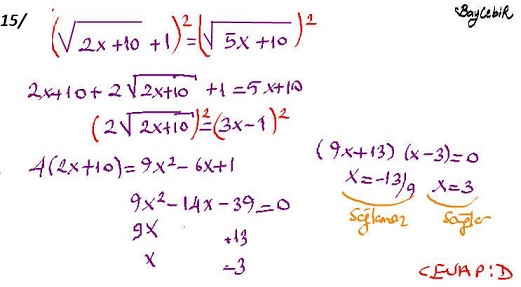 15/ (√2x+10 + 1)² = (√5x+10)²
Baycebir
2x+10 + 2√2x+10 + 1 = 5x+10
(2√2x+10)² = (3x-1)²
4(2x+10) = 9x² - 6x + 1
9x² - 14x - 39 = 0
9x +13
x -3
(9x+13) (x-3) = 0
x = -13/9 x = 3
Sağlamaz Sağlar
CEVAP: D